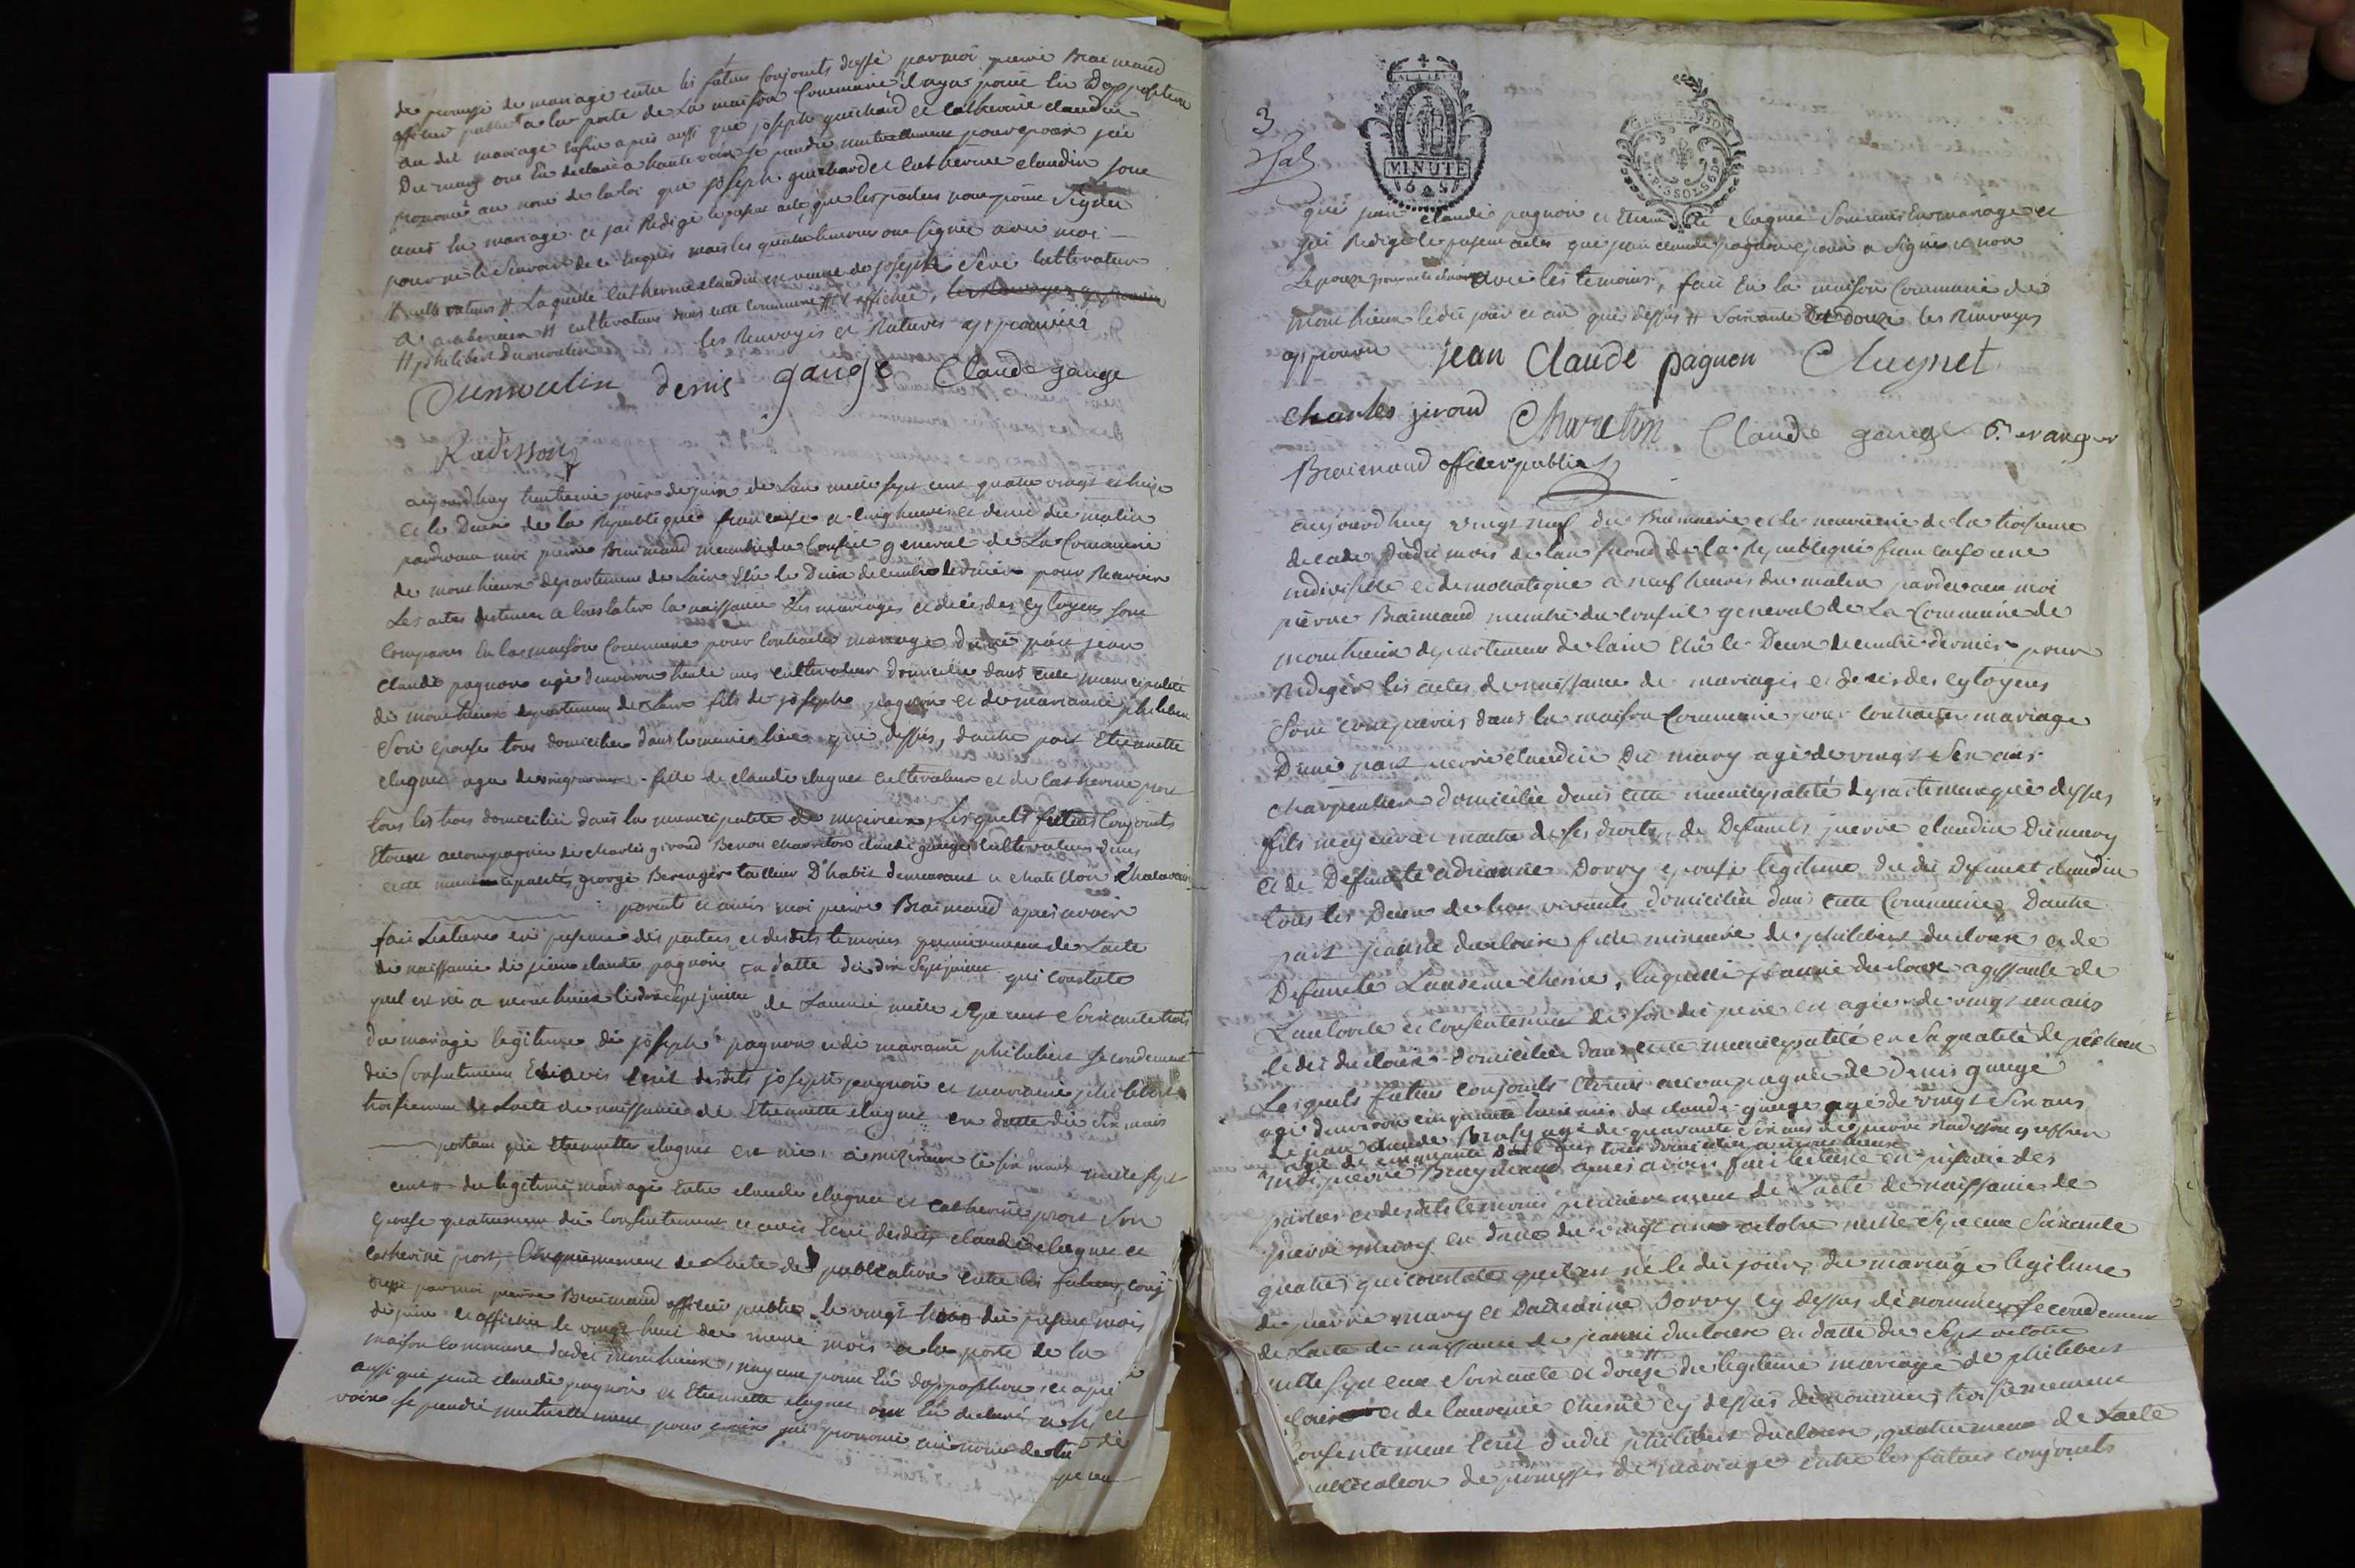 de promesse de mariage entre les futurs conjoints dressé par moi pierre Braimaud
officier public a la porte de la maison Commune il nya point eu Dopposition
au dit mariage enfin apres aussi que joseph guichard et catherine claudin
Dumary ont eu declaré a haute voix se prendre mutuellement pour epoux jai
prononcé au nom de la loi que joseph guichard et catherine claudin sont
unis en mariage et jai Redigé le present acte que les parties nont point Signer
pour ne le Scavoir de ce Requis mais les quatre temoins ont signé avec moi
# cultivateurs # Laquelle catherine claudin en veuve de joseph Séve cultivateur
a amberieux # cultivateurs dans cette commune # et affichée,
# philibert dumoulin les Renvoyes et Ratures approuvées
Dumoulin denis gange Claude gange
Radisson
aujourdhuy trentieme jour de juin de Lan mille sept cent quatre vingt et treize
et le Deux de la Republique francaise a cinq heures et demie du matin
pardevant moi pierre Braimaud membre du Conseil general de La Commune
de monthieux departement de Lain Elu le Deux decembre dernier pour Recevoir
Les actes destinés a constater la naissance les mariages et décès des cytoyens sont
comparus en la maison Commune pour contracter mariage dune part jean
claude pagnon agé denviron trente ans cultivateur domicilié dans cette municipalité
de monthieux departement de Lain fils de joseph pagnon et de marianne philibert
Son epouse tous domiciliés dans le meme lieu que dessus, dautre part Etiennette
clugnet agée de fille de claude clugnet cultivateur et de catherine prost
tous les trois domiciliés dans la municipalité de mizerieux, Lesquels futurs Conjoints
Etoient accompagnés de charles giroud Benoit charreton claude gange cultivateurs dans
cette municipalité, george Berenger tailleur D'habit demeurant a chatillon Chalaronne
parents et amis moi pierre Braimaud apres avoir
fait Lecture en presence des parties et desdits temoins premierement de Lacte
de naissance de jean claude pagnon en datte du dix Sept janvier qui constate
quil est né a monthieux le dix Sept janvier de Lannée mille Sept cent Soixante trois
du mariage legitime de joseph pagnon et de marianne philibert Secondement
du Consentement Et avis Ecrit desdits joseph pagnon et marianne philibert
troisiemement de Lacte de naissance de Etiennette clugnet en datte du Six mars
portant que Etiennette clugnet est née a mizerieux le six mars mille sept
cent # du legitime mariage Entre claude clugnet et catherine prost Son
Epouse quatriemement du Consentement et avis Ecrit desdits claude clugnet et
catherine prost, Cinquiemement de Lacte de publication entre les futurs conj
dressé par moi pierre Braimaud officier public le vingt trois du present mois
de juin et affichée le vingt huit du meme mois a la porte de la
maison commune dudit monthieux, nayant point Eu dopposition, et apres
aussi que jean claude pagnon et Etiennette clugnet ont Eu declaré a h et
voix se prendre mutuellement pour epoux jai prononcé au nom de la
3
MINUTE
que jean claude pagnon et Etiennette clugnet Sont unis En mariage et
jai Redigé le present acte que jean claude pagnon epoux a Signé et non
Lepouse pour ne le scavoir avec les temoins, fait En la maison Commune de
monthieux ledit jour et an que dessus # Soixante et douze les Renvoyes
approuvés jean Claude pagnon Clugnet
Charles giroud Charreton Claude gange
Braimaud officier public
aujourdhuy vingt neuf du Brumaire et le neuvieme de la troisieme
decade dudit mois de lan second de la Republique francaise une
indivisible et democratique a neuf heures du matin pardevant moi
pierre Braimaud membre du conseil general de La Commune de
monthieux departement de lain Elu le Deux decembre dernier pour
Rediger les actes de naissance de mariages et deces des cytoyens
Sont comparus dans la maison Commune pour contracter mariage
Dune part pierre claudin Du mary agé de vingt Six ans
charpentier domicilié dans cette municipalité departement que dessus
fils majeur et maitre de ses droits, de Defunts pierre claudin Dumary
et de Defunte adrianne Dorry epouse legitime du dit Defunct claudin
tous les Deux de leur vivants domiciliés dans cette Commune, Dautre
part jeanne ducloux fille mineure de philibert ducloux et de
Defuncte Laurence chesne, laquelle jeanne ducloux agissante de
Lautorité et consentement de son dit pere est agée de vingt un ans
ledit ducloux domicilié dans cette municipalité en Saqualité de pêcheur
Lesquels futurs conjoints Etoient accompagnés de Denis gange
agé denviron cinquante huit ans de claude gange agé de vingt Six ans
de jean claude Brosy agé de quarante Six ans de pierre Radisson greffier
agé de cinquante ans tous domiciliés a monthieux
moi pierre Braymaud apres avoir fait lecture en presence des
parties et desdits temoins premierement de Lacte de naissance de
pierre mary en datte du vingt un octobre mille Sept cent Soixante
quatre qui constate quil est né le dit jour, du mariage legitime
de pierre mary et Dadrianne Dorry cy dessus dénommés, Secondement
de Lacte de naissance de jeanne ducloux en datte du Sept octobre
mille Sept cent Soixante et douze # du legitime mariage de philibert
cloux et de laurence chesne cy dessus dénommés, troisiemement
Consentement Ecrit dudit philibert ducloux, quatriemement de Lacte
ublication de promesses de mariage entre les futurs conjoints